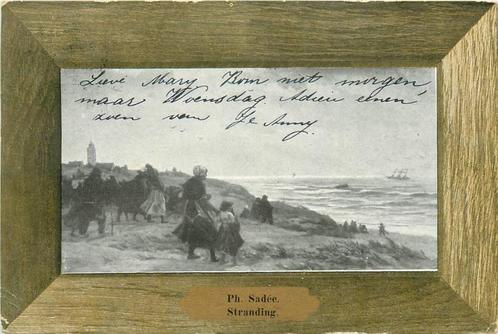 Lieve Mary Kom niet morgen
maar Woensdag Adieu eenen
zoen van Je Anny.
Ph. Sadée.
Stranding.